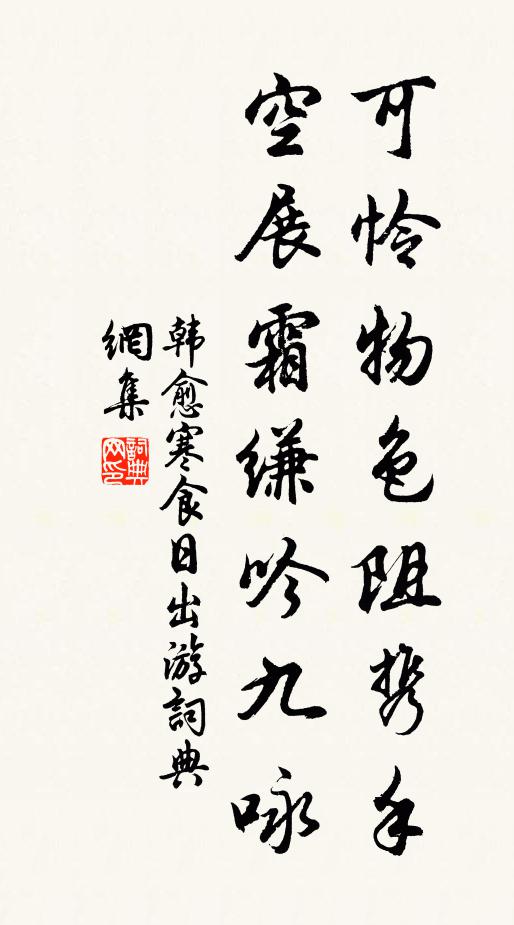 可怜物色阻携手
空展霜缣吟九咏
韩愈寒食日出游詞典
網集
詞典
网印